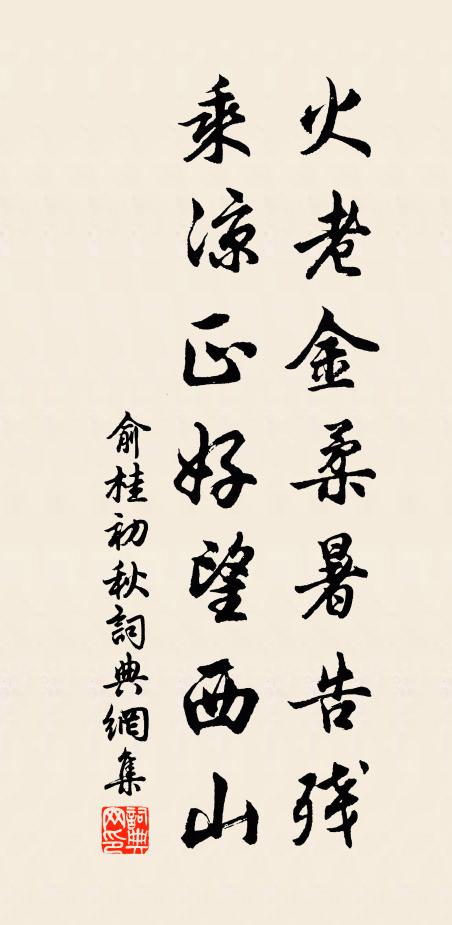 火老金柔暑告残
乘凉正好望西山
俞桂初秋詞典網集
詞典網印